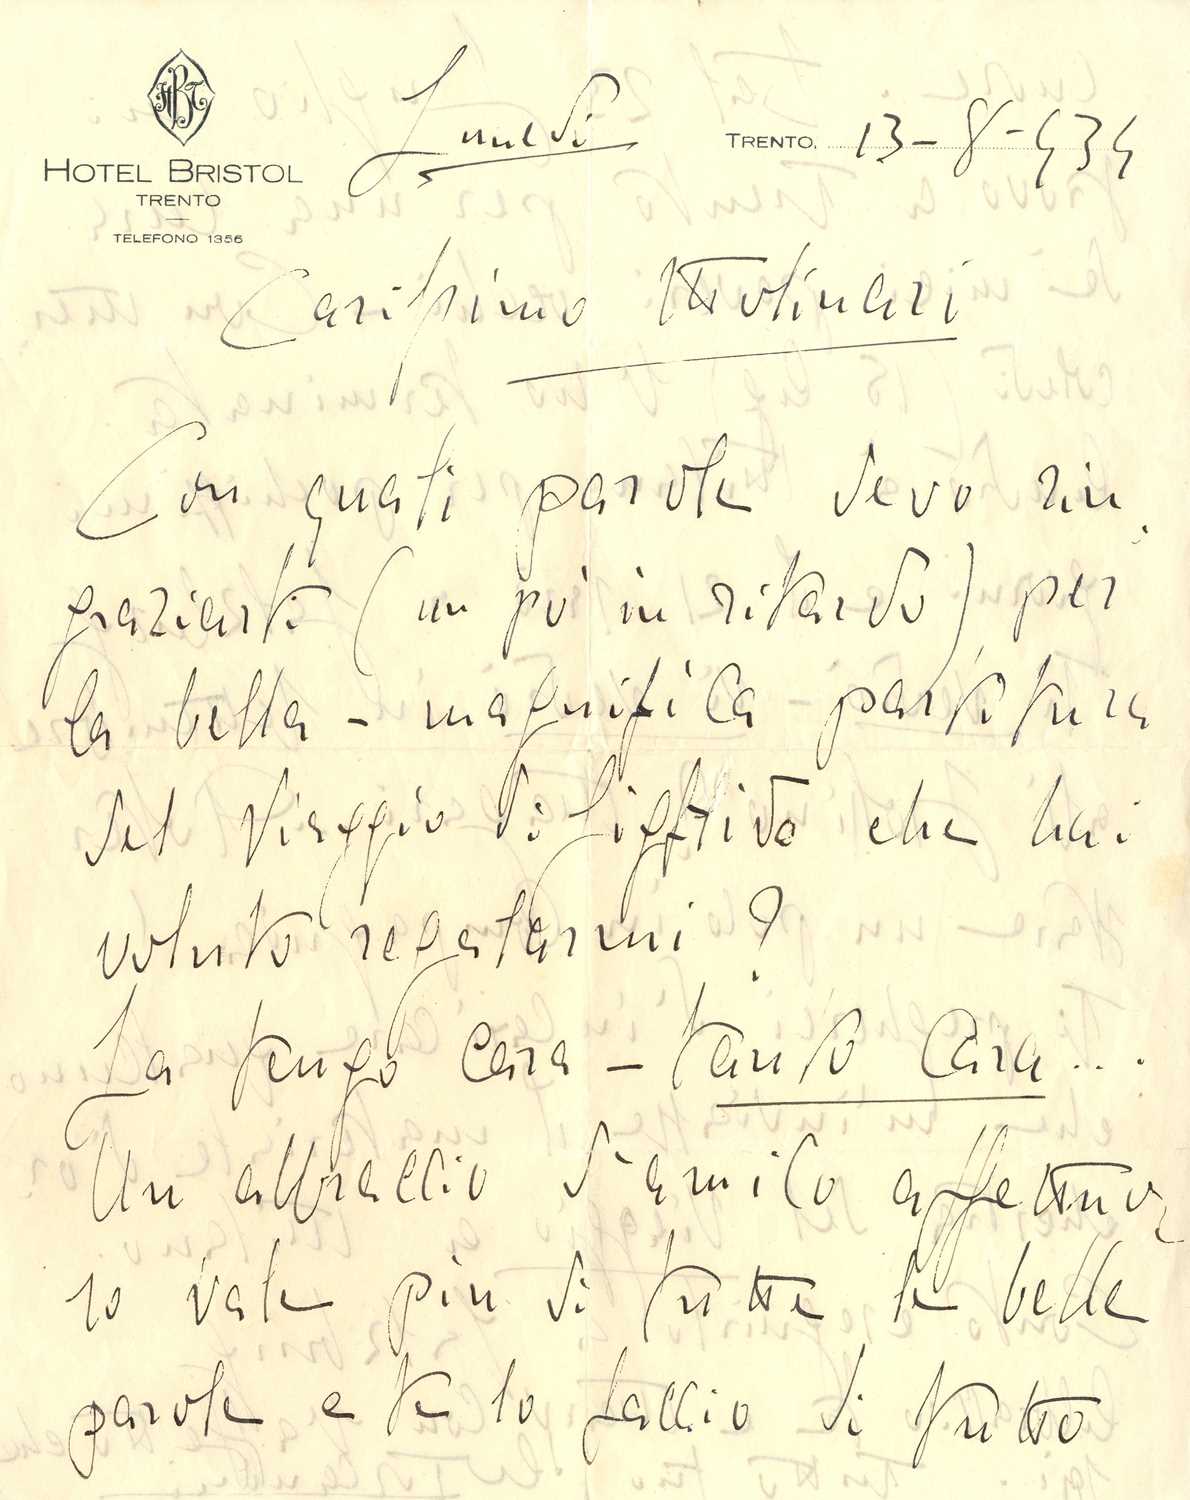 HBT
HOTEL BRISTOL
TRENTO
TELEFONO 1356
Lunedì
TRENTO, 13-8-934
Carissimo Molinari
Con quali parole devo rin
graziarti (un pò in ritardo) per
la bella - magnifica - partitura
del Viaggio di Sigfrido che hai
voluto regalarmi?
La tengo cara - tanto cara...
Un abbraccio d'amico affettuo
so vale più di tutte le belle
parole e te lo faccio di tutto